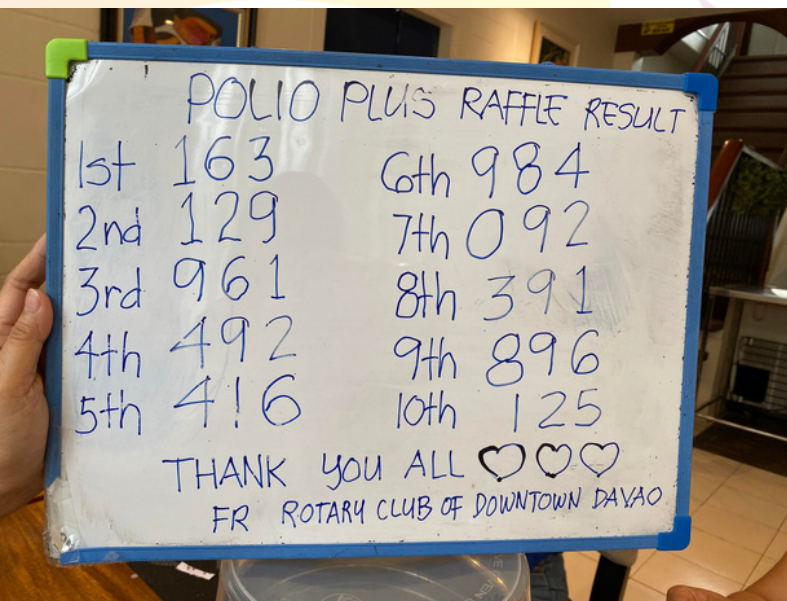 POLIO PLUS RAFFLE RESULT
1st 163
2nd 129
3rd 961
4th 492
5th 416
6th 984
7th 092
8th 391
9th 896
10th 125
THANK YOU ALL ♡♡♡
FR ROTARY CLUB OF DOWNTOWN DAVAO